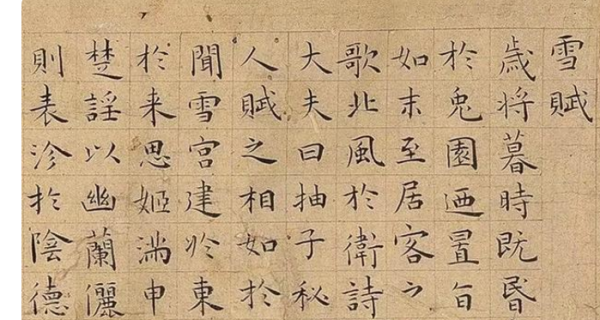 雪賦
歲將暮時既昬
於兔園迺置旨
如末至居客之
歌北風於衛詩
大夫曰抽子秘
人賦之相如於
聞雪宮建於東
於来思姬滿申
楚謡以幽蘭儷
則表沴於陰德